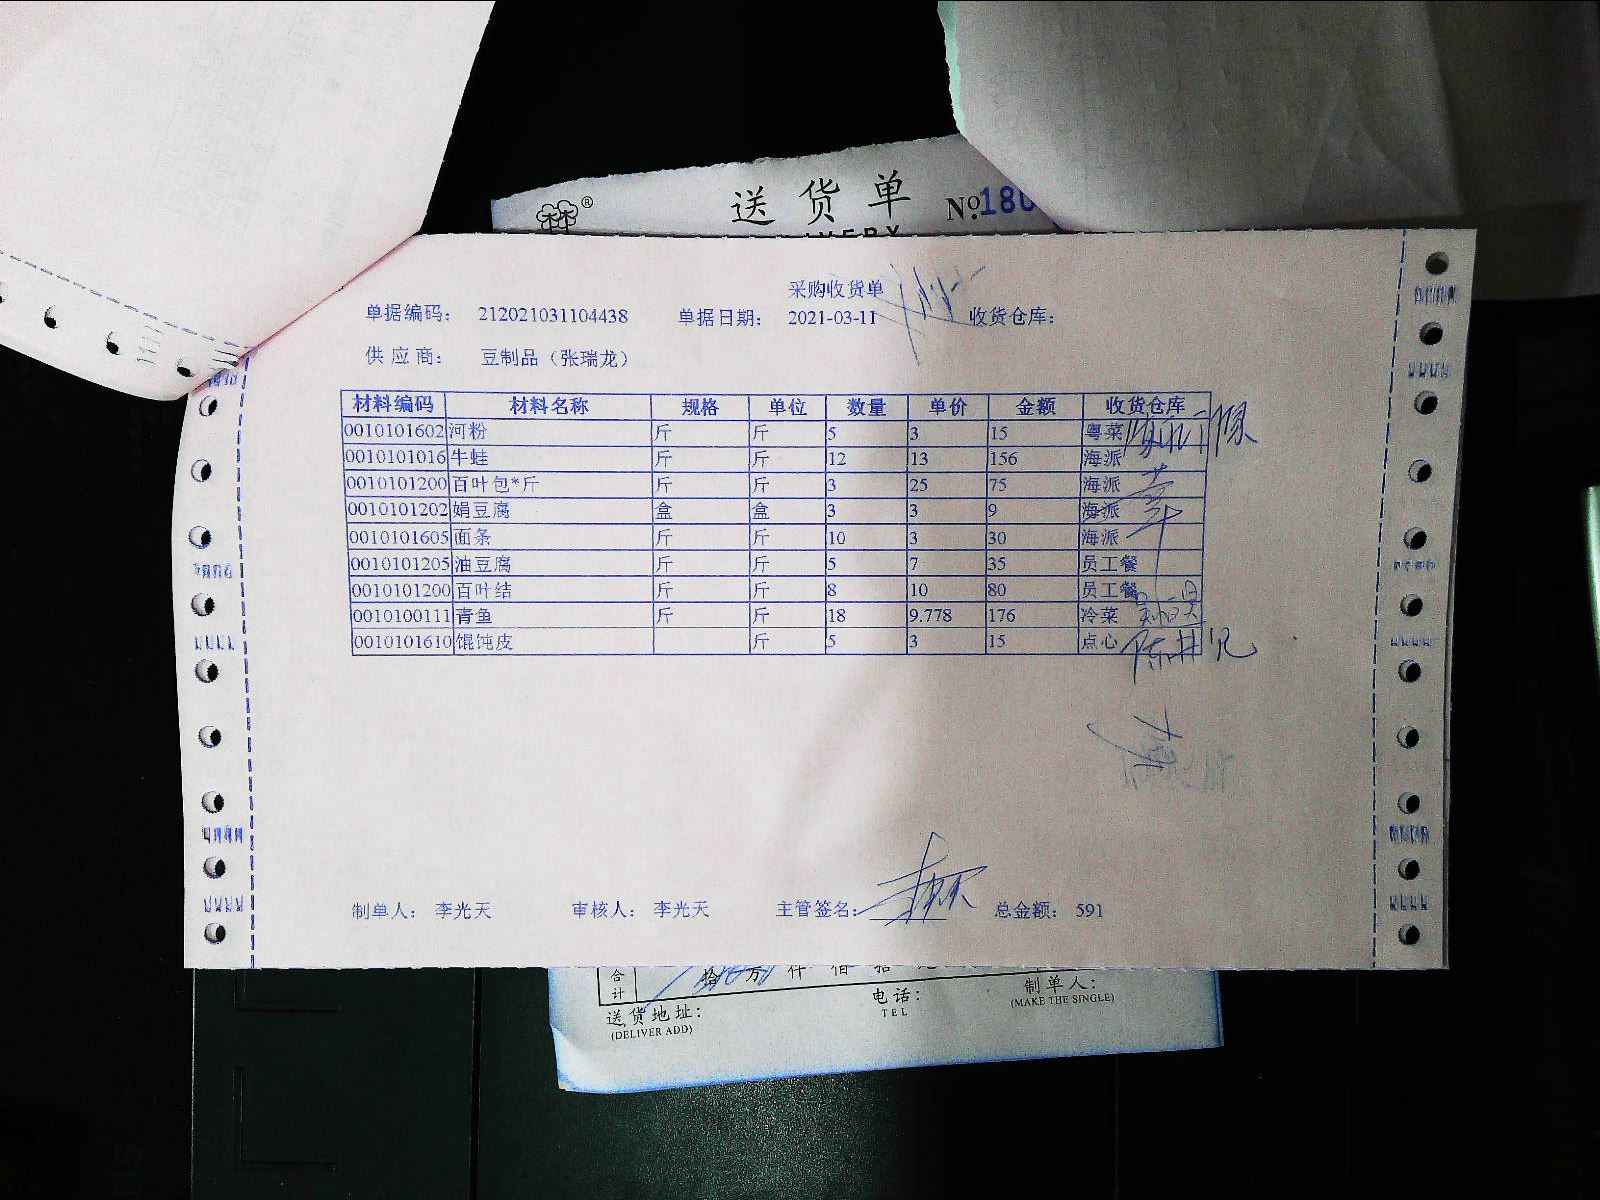 送货单 No.180
采购收货单
单据编码： 212021031104438 单据日期： 2021-03-11 收货仓库：
供应商： 豆制品（张瑞龙）
材料编码 材料名称 规格 单位 数量 单价 金额 收货仓库
0010101602 河粉 斤 斤 5 3 15 粤菜
0010101016 牛蛙 斤 斤 12 13 156 海派
0010101200 百叶包*斤 斤 斤 3 25 75 海派
0010101202 娟豆腐 盒 盒 3 3 9 海派
0010101605 面条 斤 斤 10 3 30 海派
0010101205 油豆腐 斤 斤 5 7 35 员工餐
0010101200 百叶结 斤 斤 8 10 80 员工餐
0010100111 青鱼 斤 斤 18 9.778 176 冷菜
0010101610 馄饨皮 斤 5 3 15 点心
制单人： 李光天 审核人： 李光天 主管签名： 总金额： 591
合计 拾 万 仟 佰 拾
送货地址： 电话： 制单人：
(DELIVER ADD) TEL (MAKE THE SINGLE)